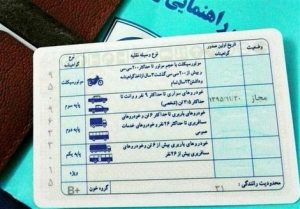 راهنمایی
وضعیت
تاریخ اولین صدور گواهینامه
نوع وسیله نقلیه
نوع گواهینامه
موتورسیکلت با حجم موتور تا حداکثر ۲۰۰ سی سی
و بیش از ۲۰۰ سی سی
موتورسیکلت
مجاز
۱۳۹۵/۱۱/۲۰
خودروهای سواری تا حداکثر ۹ نفر و وانت تا
حداکثر ۳/۵ تن (شخصی)
پایه سوم
خودروهای باربری تا حداکثر ۶ تن و خودروهای
مسافربری تا حداکثر ۲۶ نفر و خودروهای خدمات
عمومی
پایه دوم
خودروهای باربری بیش از ۶ تن و خودروهای
مسافربری بیش از ۲۶ نفر
پایه یکم
ویژه
محدودیت رانندگی :
۳۱
گروه خون
B+